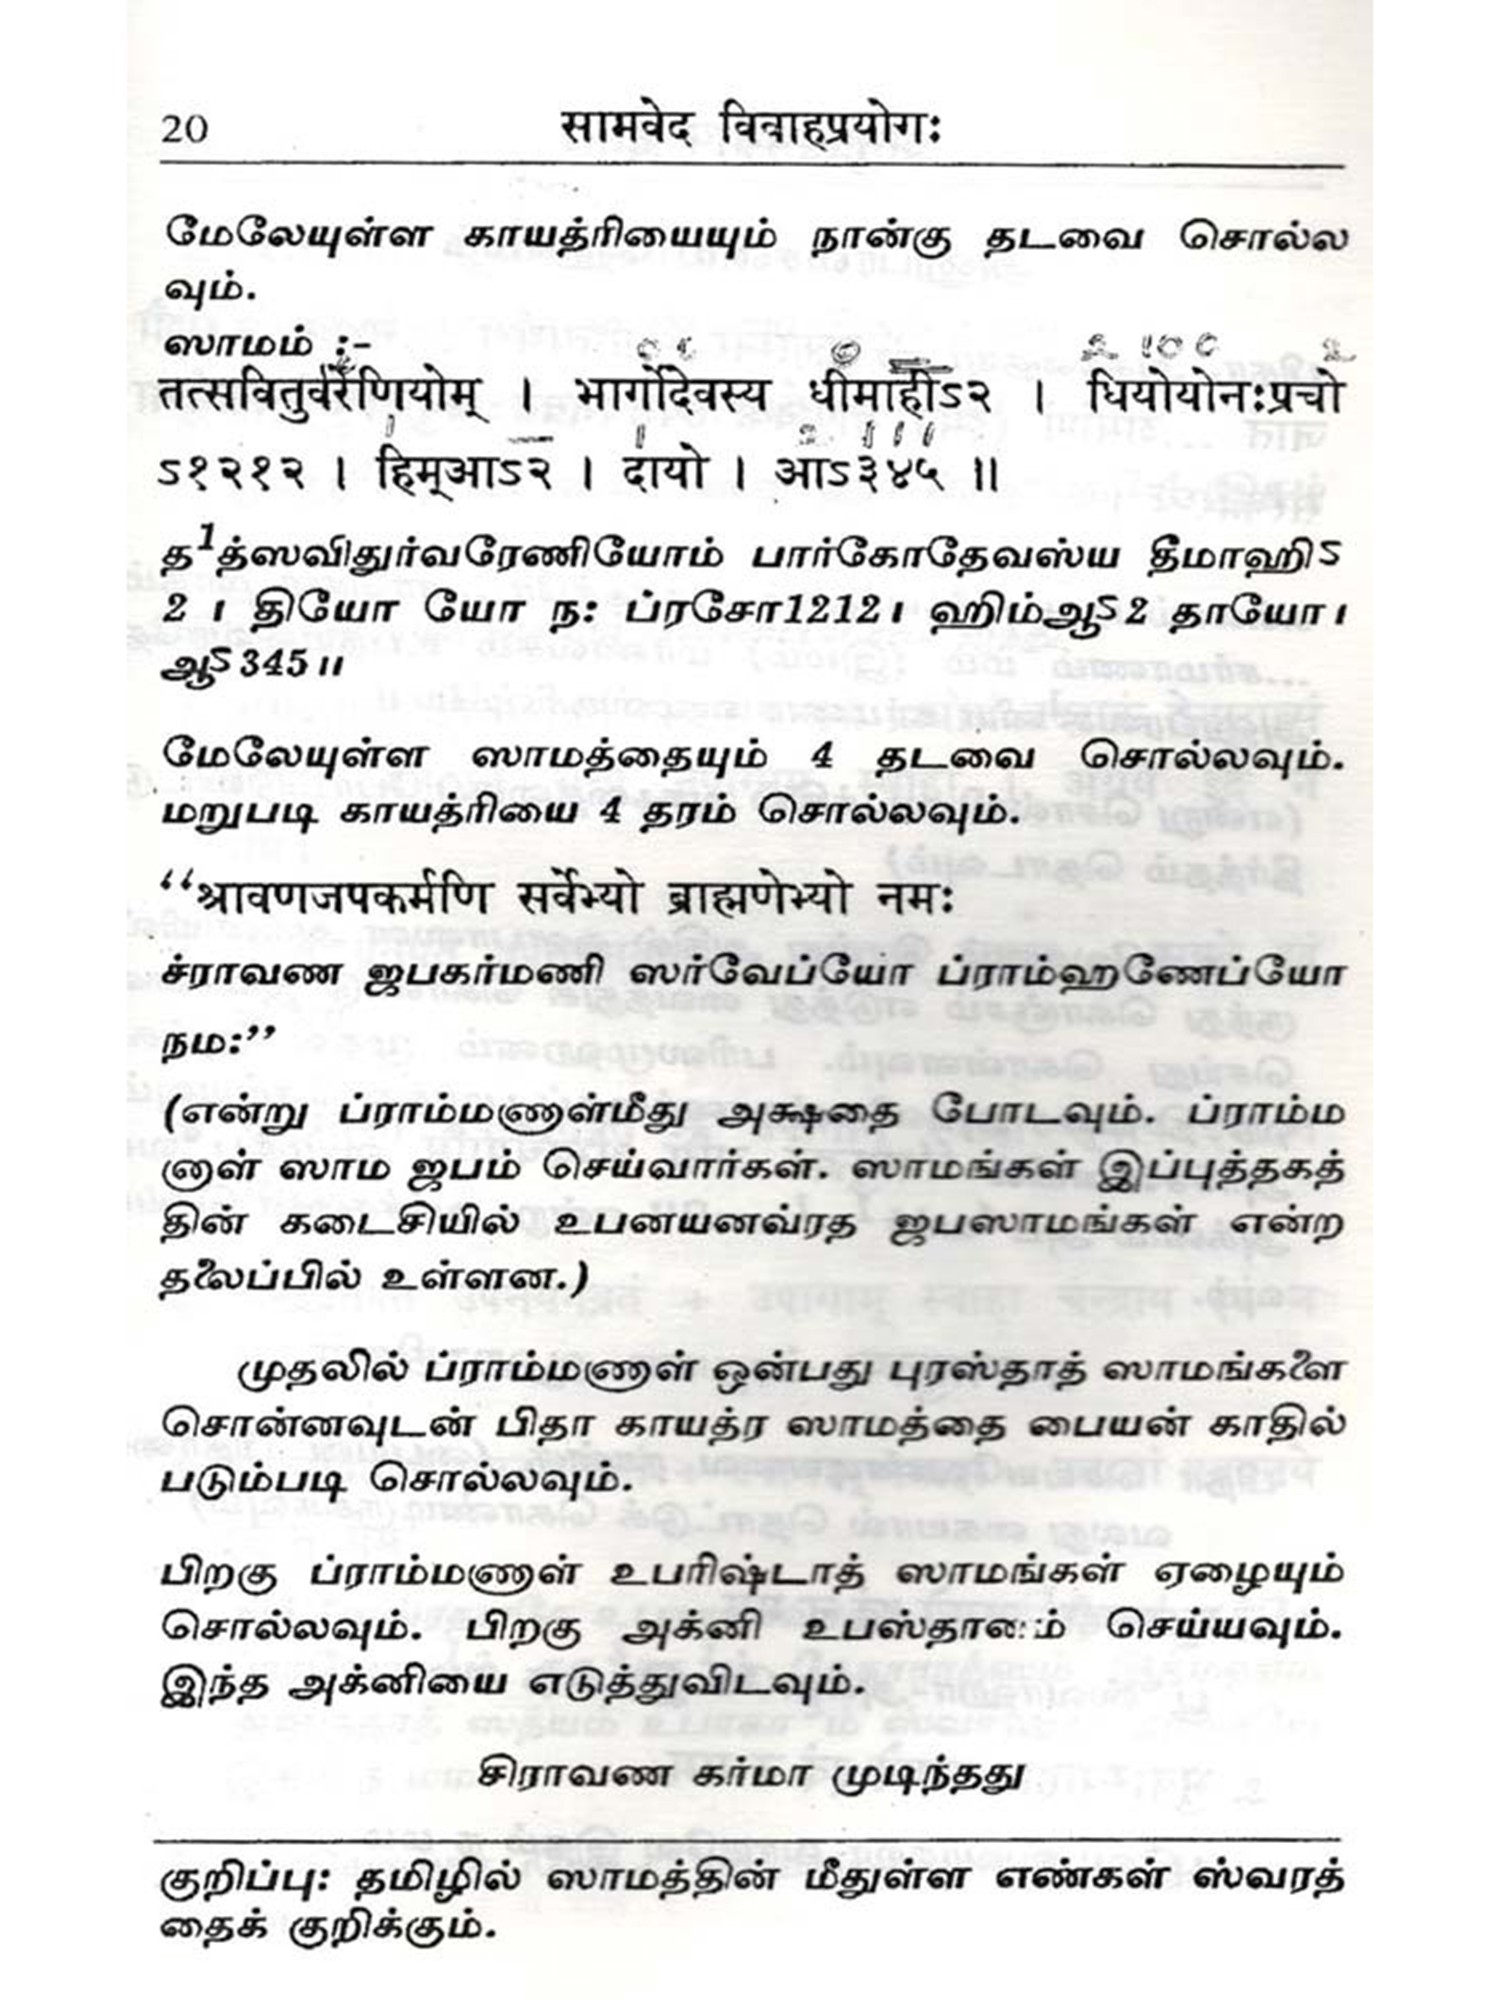 20 सामवेद विवाहप्रयोगः
மேலேயுள்ள காயத்ரியையும் நான்கு தடவை சொல்ல
வும்.
ஸாமம் :-
तत्सवितुर्वरेणियोम् । भार्गोदेवस्य धीमाहीऽ२ । धियोयोनःप्रचो
ऽ१२१२ । हिम्आऽ२ । दायो । आऽ३४५ ॥
த1த்ஸவிதுர்வரேணியோம் பார்கோதேவஸ்ய தீமாஹி஽
2 । தியோ யோ ந: ப்ரசோ1212। ஹிம்ஆ஽2 தாயோ।
ஆ஽345॥
மேலேயுள்ள ஸாமத்தையும் 4 தடவை சொல்லவும்.
மறுபடி காயத்ரியை 4 தரம் சொல்லவும்.
“श्रावणजपकर्मणि सर्वेभ्यो ब्राह्मणेभ्यो नमः
ச்ராவண ஜபகர்மணி ஸர்வேப்யோ ப்ராம்ஹணேப்யோ
நம:”
(என்று ப்ராம்மணாள்மீது அக்ஷதை போடவும். ப்ராம்ம
ணாள் ஸாம ஜபம் செய்வார்கள். ஸாமங்கள் இப்புத்தகத்
தின் கடைசியில் உபனயனவ்ரத ஜபஸாமங்கள் என்ற
தலைப்பில் உள்ளன.)
முதலில் ப்ராம்மணாள் ஒன்பது புரஸ்தாத் ஸாமங்களை
சொன்னவுடன் பிதா காயத்ர ஸாமத்தை பையன் காதில்
படும்படி சொல்லவும்.
பிறகு ப்ராம்மணாள் உபரிஷ்டாத் ஸாமங்கள் ஏழையும்
சொல்லவும். பிறகு அக்னி உபஸ்தானம் செய்யவும்.
இந்த அக்னியை எடுத்துவிடவும்.
சிராவண கர்மா முடிந்தது
குறிப்பு: தமிழில் ஸாமத்தின் மீதுள்ள எண்கள் ஸ்வரத்
தைக் குறிக்கும்.